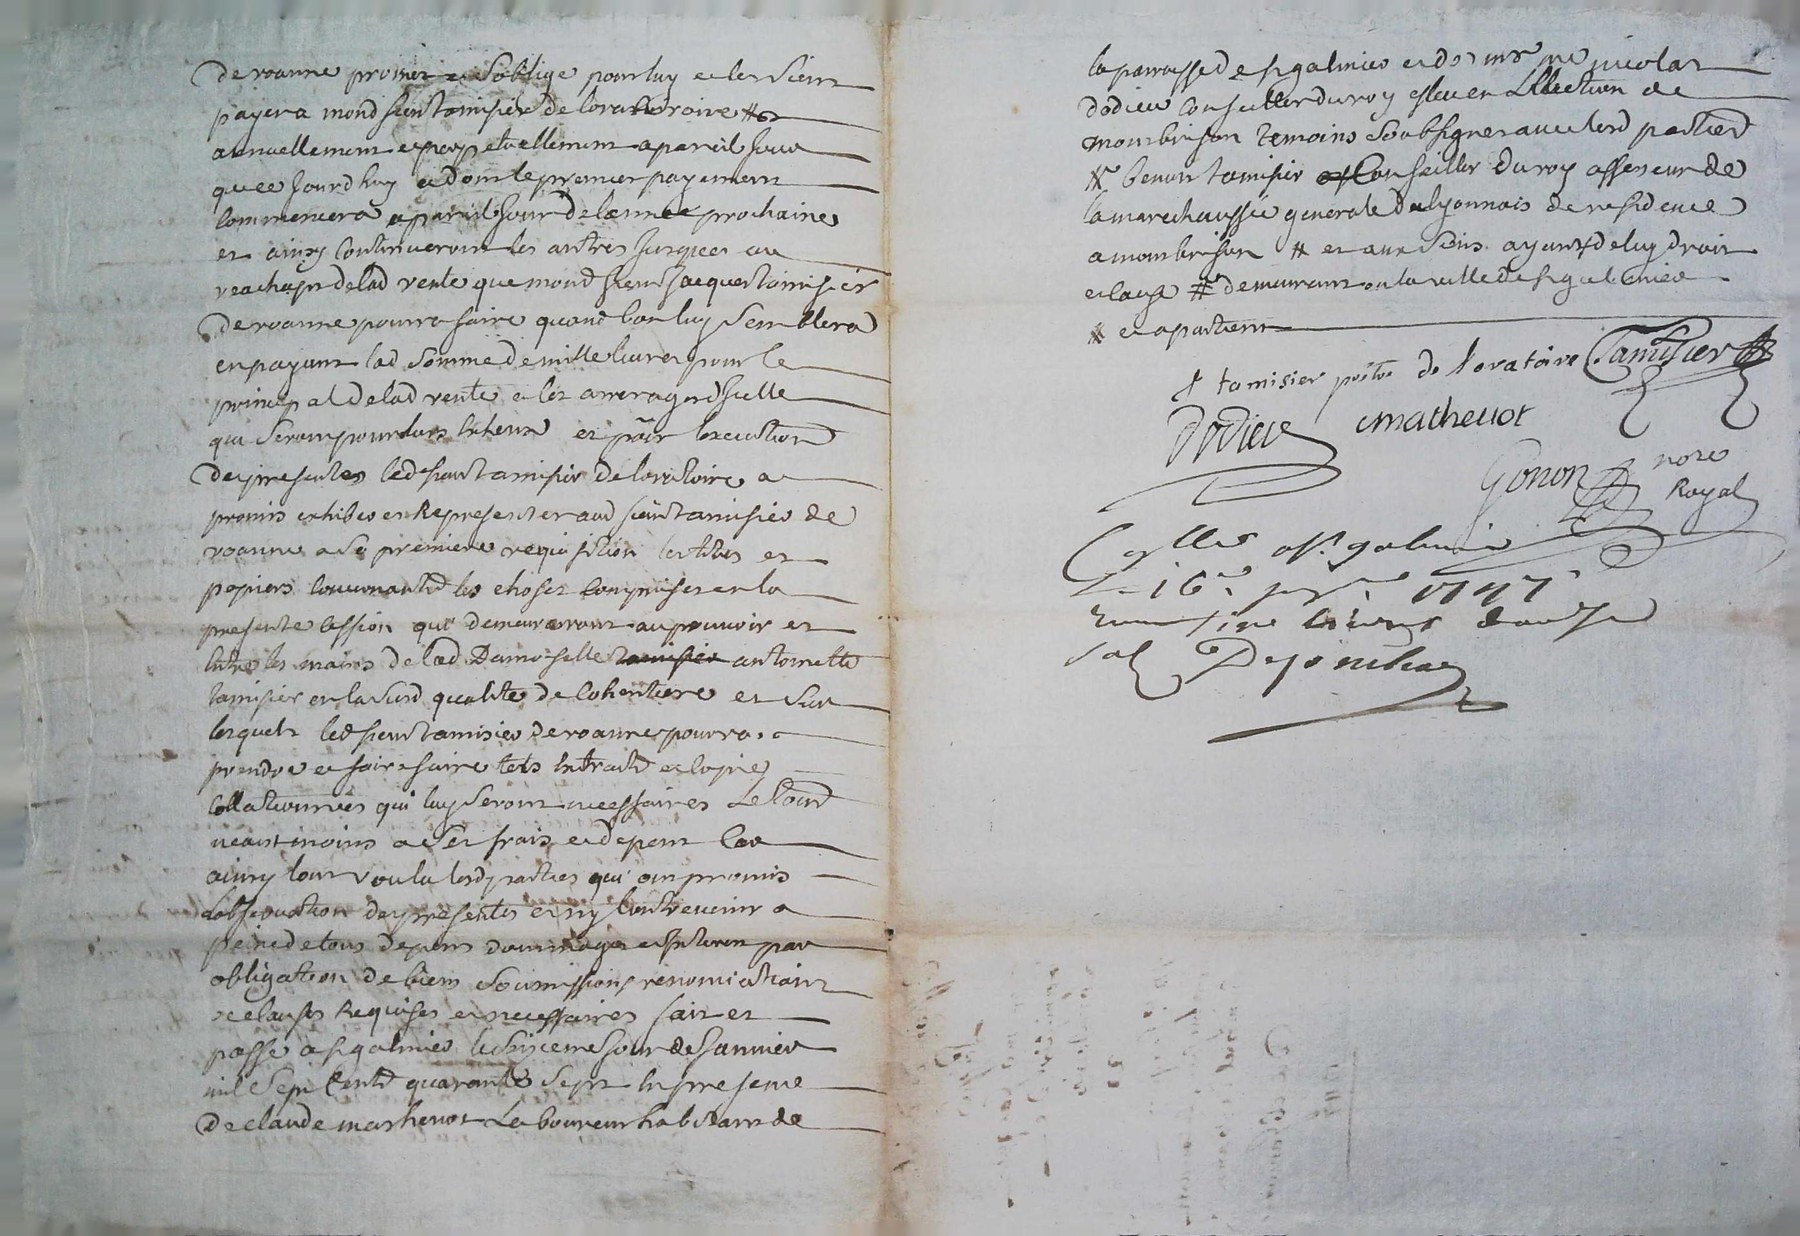 de roanne promet et soblige pour luy et les siens
payera mond sieur tamisier de loratoire #
annuellement et perpetuellement a pareil jour
que ce jourdhuy et dont le premier payement
commencera a pareil jour de lannée prochaine
et ainsy continueront les autres jusques au
reachapt de lad rente que mond sieur jacques tamisier
de roanne pourra faire quand bon luy semblera
en payant lad somme de mille livres pour le
principal de lad rente et les arrerages dicelle
qui seront pour lors et pour lexecution
des presentes led sieur tamisier de loratoire a
promis exhiber et Representer aud sieur tamisier de
roanne a sa premiere requisition les titres et
papiers concernantd les choses comprises en la
presente cession qui demeureront au pouvoir et
entre les mains de lad Damoiselle tamisier antoinette
tamisier en la susd qualité de coheritiere et sur
lesquels led sieur tamisier de roanne pourra
prendre et faire faire tels extraitd et copies
collationnées qui luy seront necessaires Le toutd
neantmoins a ses frais et depens Car
ainsy lont voulu lesd parties qui ont promis
Lobservation des presentes et ny contrevenir a
peine de tous depens dommages et interets par
obligation de biens soumissions renonciations
et clauses Requises et necessaires fait et
passé a st galmier le seizieme jour de janvier
mil sept centd quarante sept en presence
de claude mathevot Laboureur habitant de
la parroisse de st galmier et de mr me nicolas
dodieu Conseiller du roy esleu en Lelection de
montbrison temoins soubsignes avec lesd partied
# benoit tamisier Conseiller du roy assesseur de
la marechaussée generale du lyonnais de residence
a montbrison # et aux siens ayants de luy droit
et cause # demeurant en la ville de st galmier
# et apartient
J tamisier prêtre de loratoire Tamisier
Dodieu mathevot
Gonon nore
Royal
Conllé a st galmier
le 16e jer 1747
livres douze
sol Desombeau